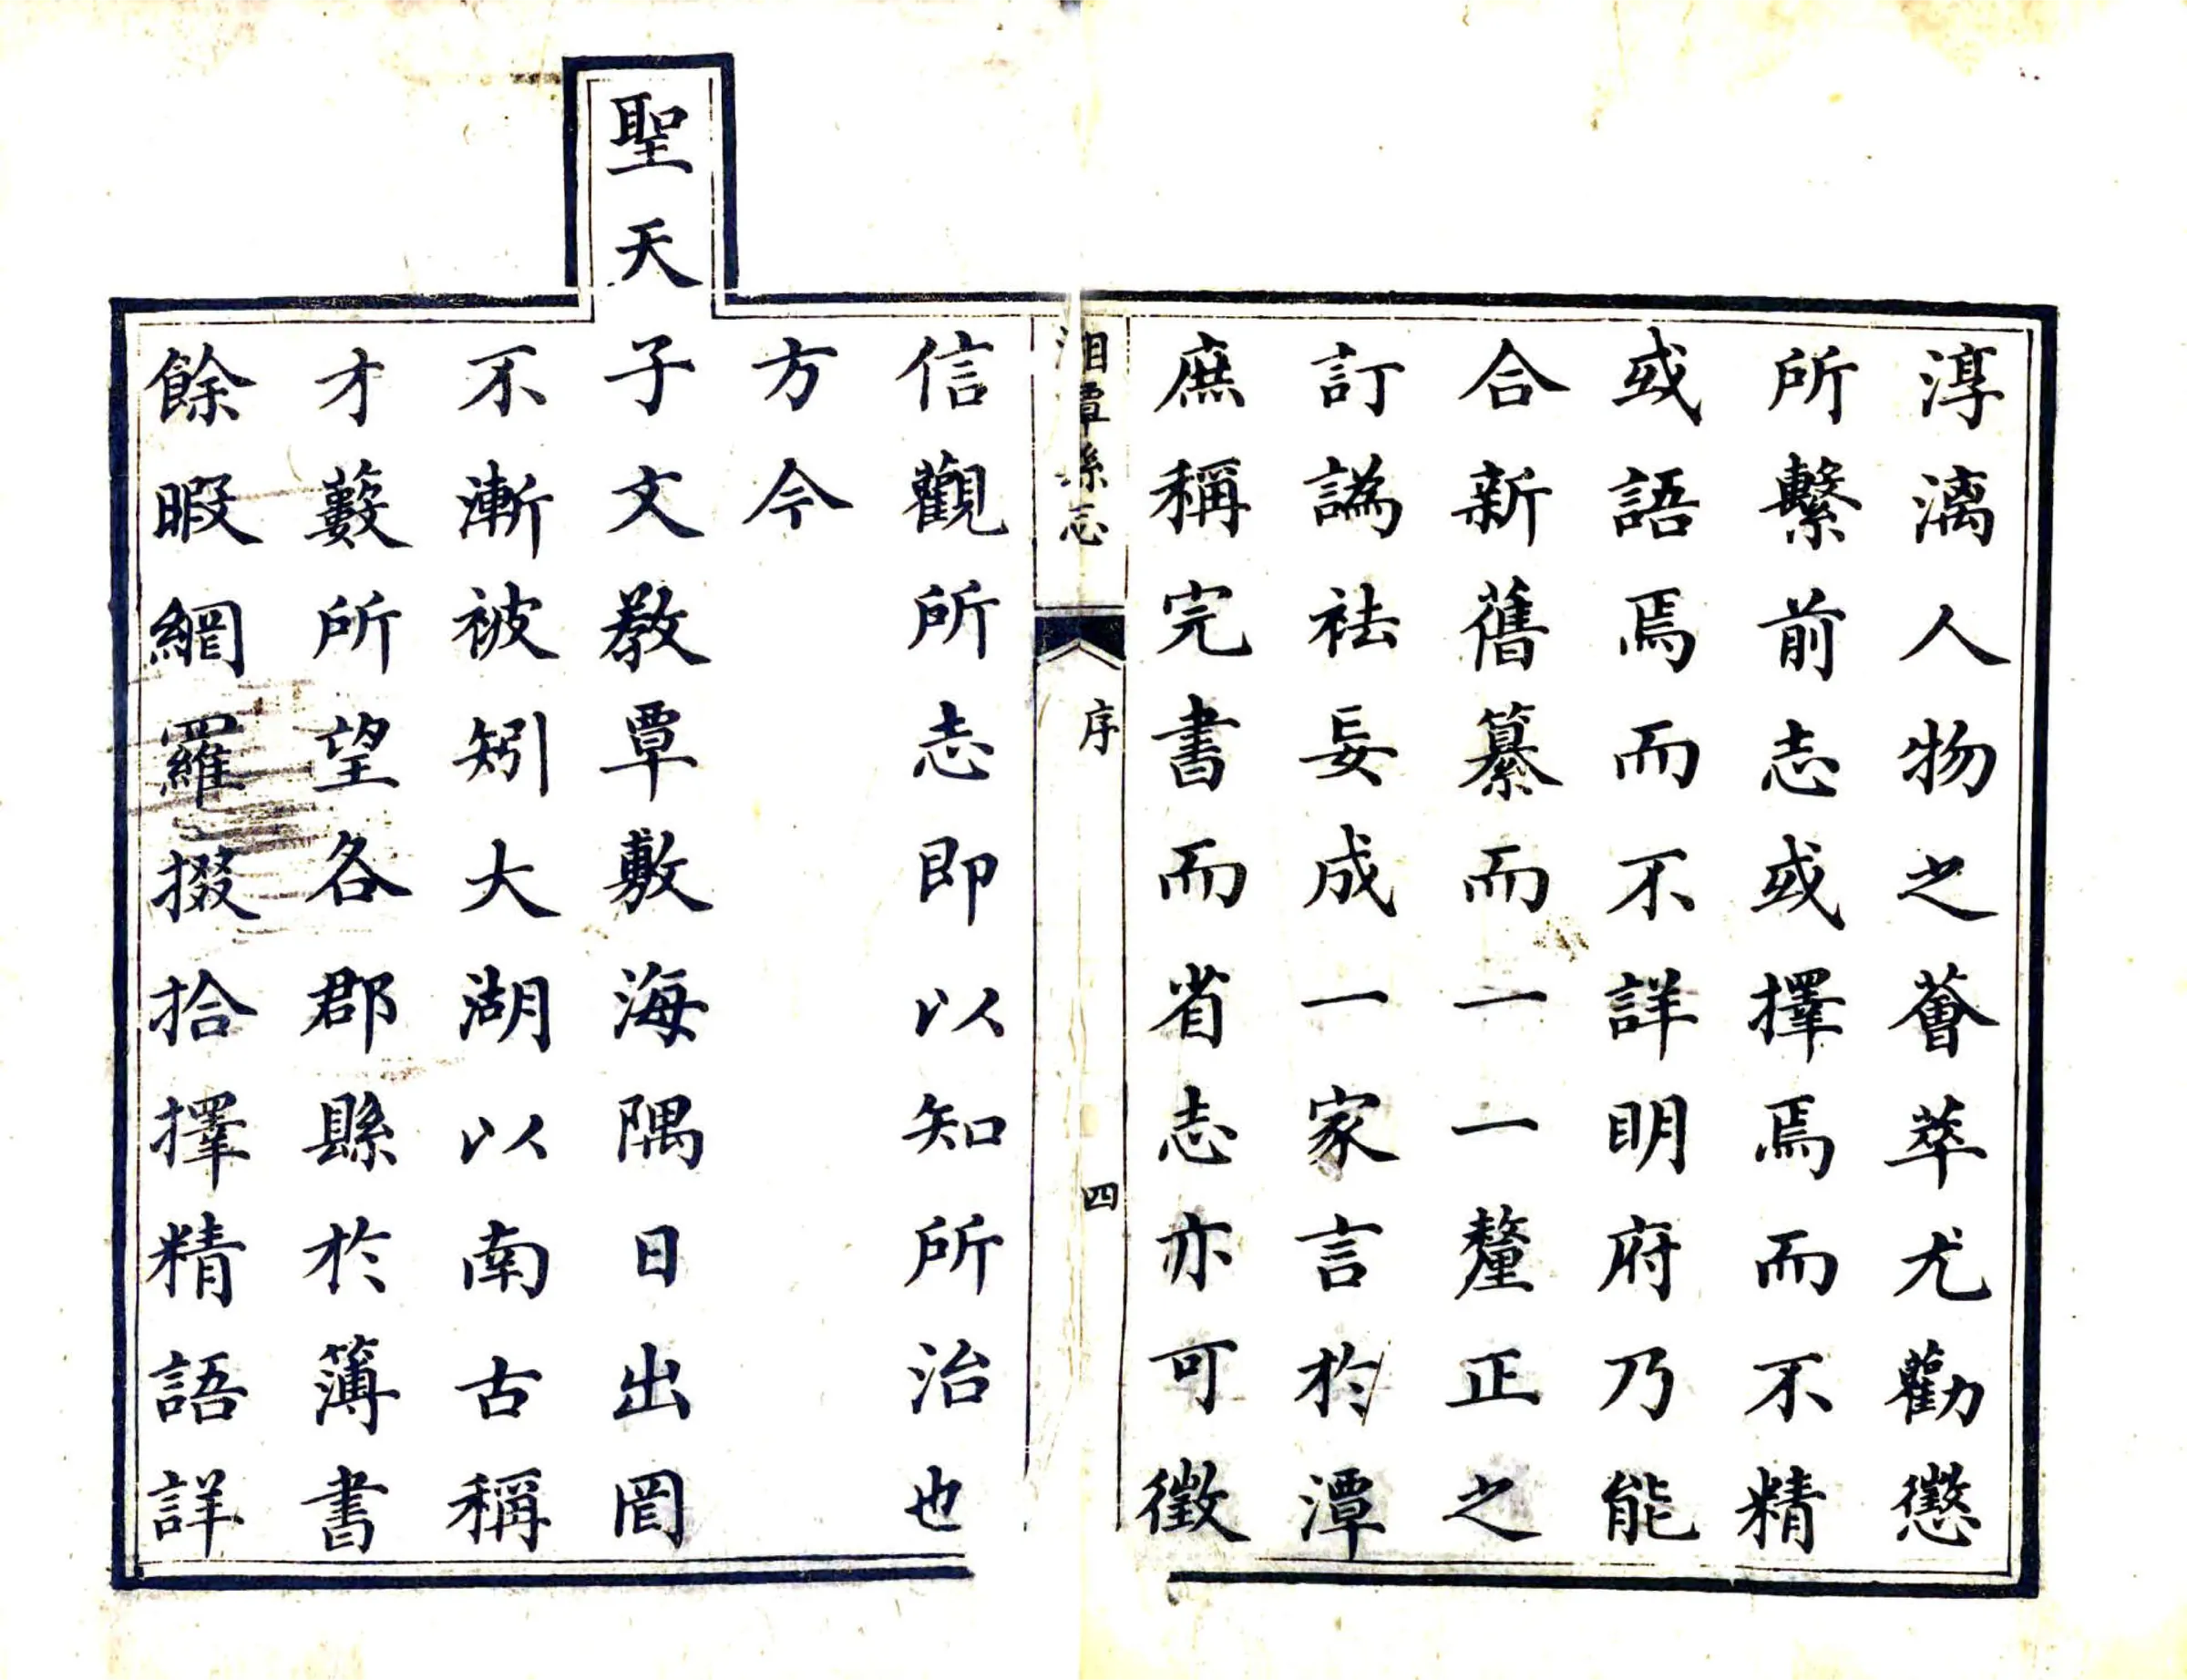 淳漓人物之薈萃尤勸懲
所繫前志或擇焉而不精
或語焉而不詳明府乃能
合新舊纂而一一釐正之
訂譌祛妄成一家言於潭
庶稱完書而省志亦可徵
湘潭縣志
序
四
信觀所志即以知所治也
方今
聖天子文教覃敷海隅日出罔
不漸被矧大湖以南古稱
才藪所望各郡縣於簿書
餘暇網羅掇拾擇精語詳